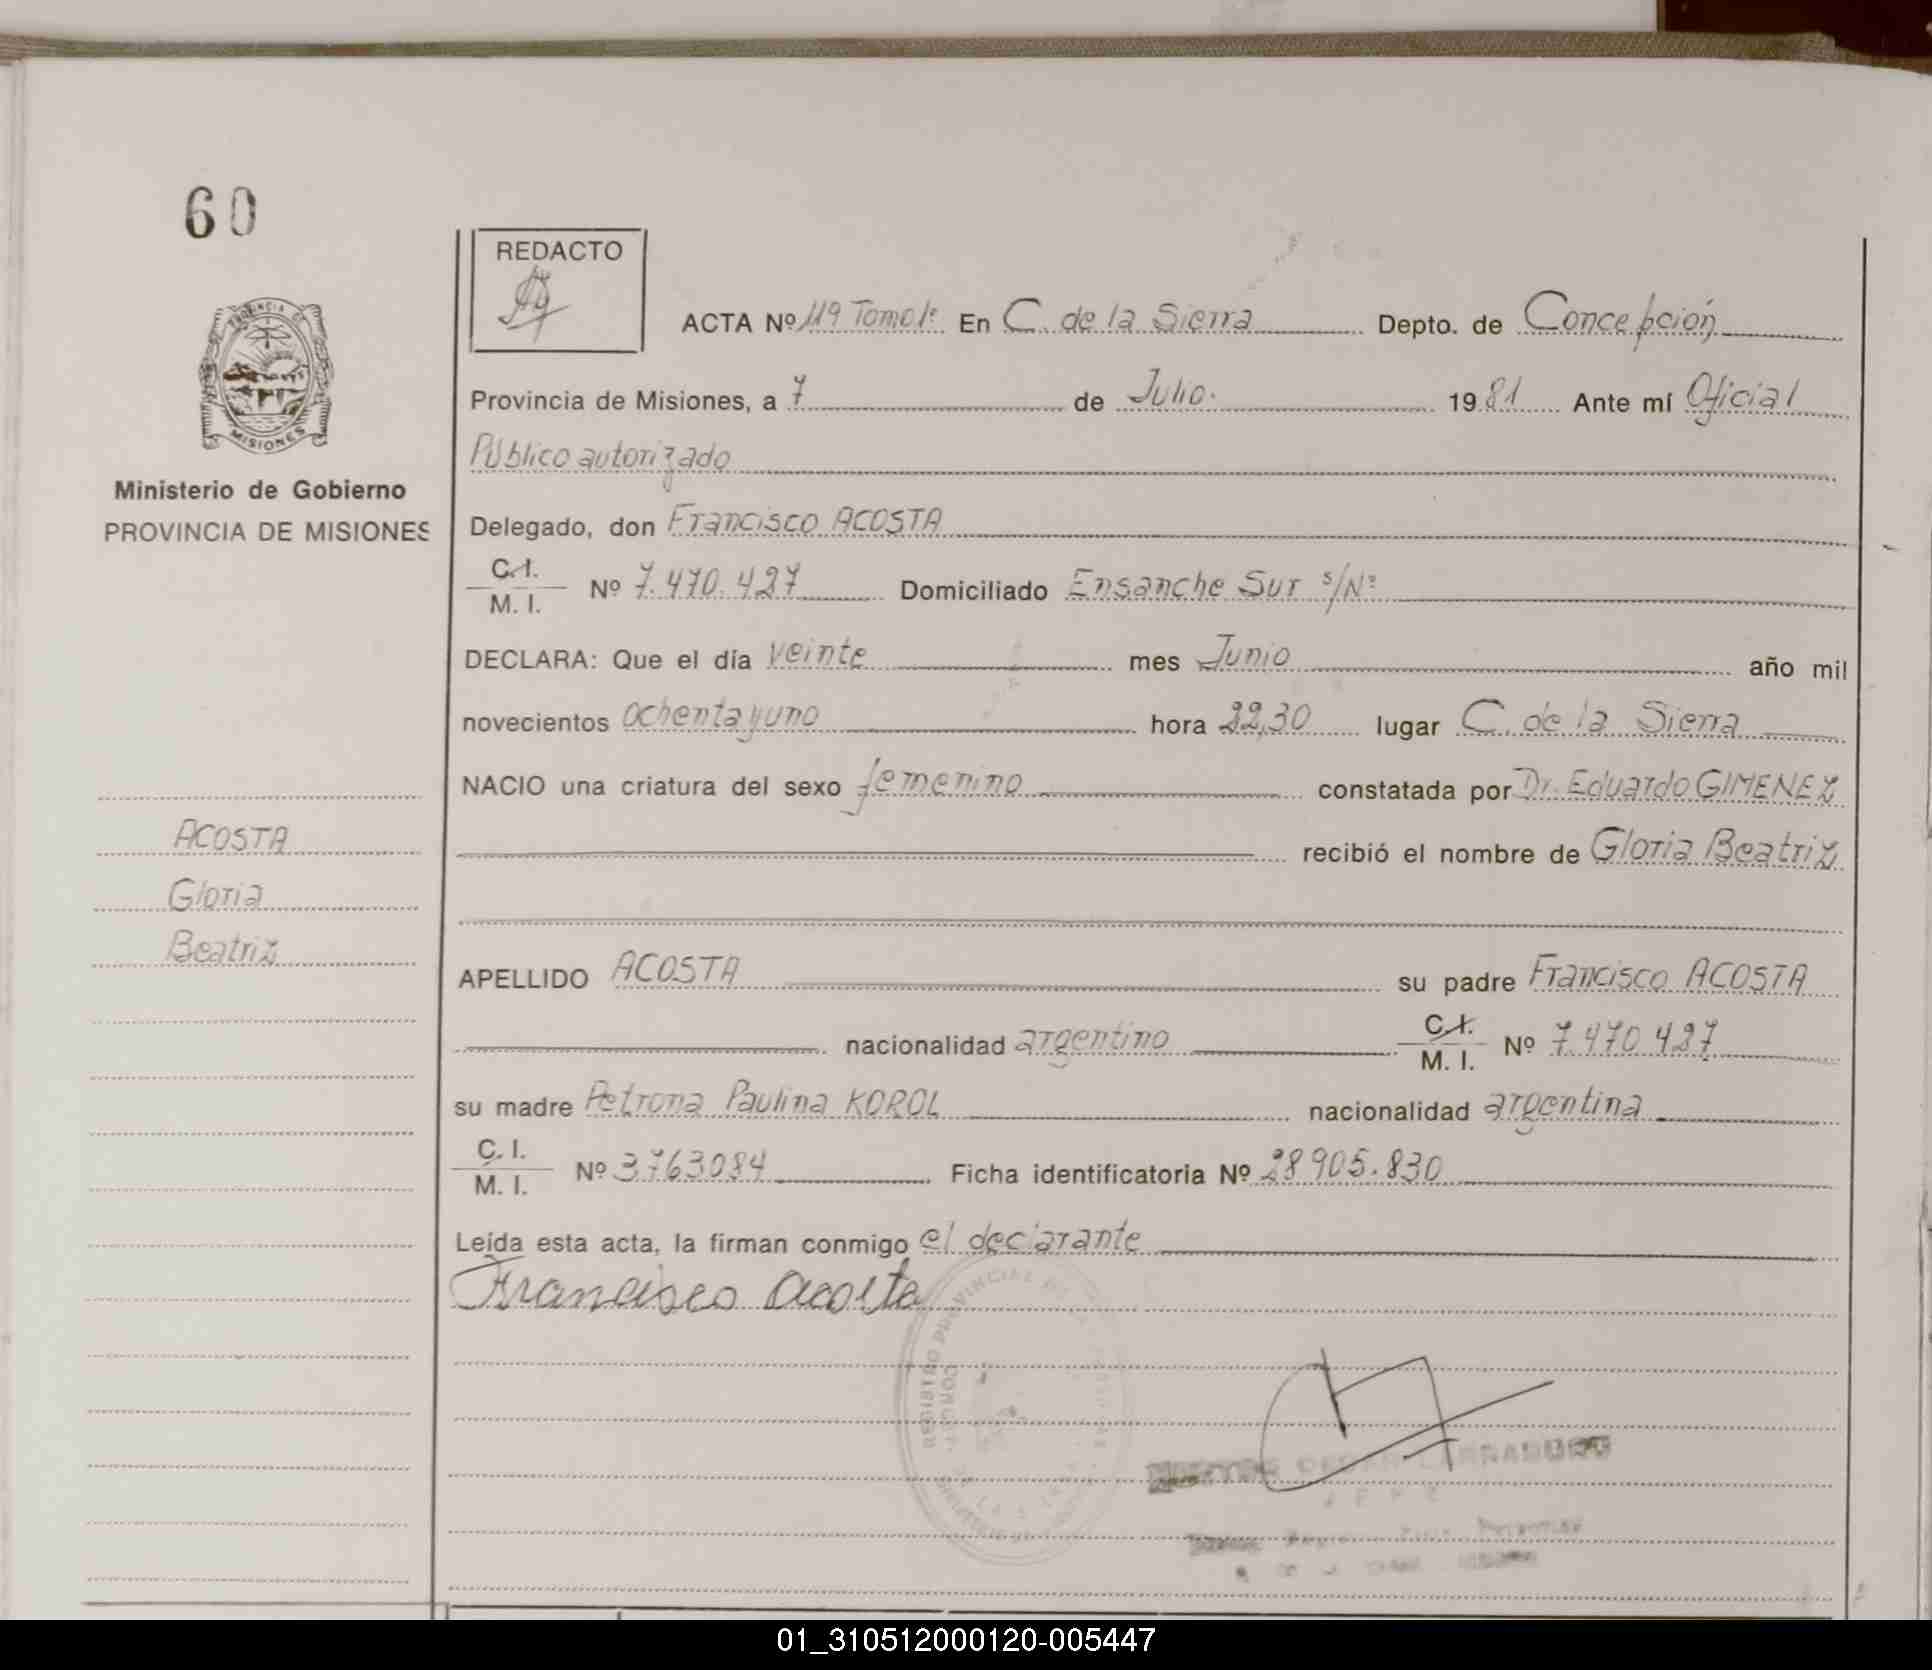 60
REDACTO
PROVINCIA DE
MISIONES
ACTA Nº 119 Tomo 1º En C. de la Sierra Depto. de Concepción
Provincia de Misiones, a 7 de Julio. 1981 Ante mí Oficial
Público autorizado
Ministerio de Gobierno
PROVINCIA DE MISIONES
Delegado, don Francisco ACOSTA
C.I.
M. I. Nº 7.470.427 Domiciliado Ensanche Sur s/Nº
DECLARA: Que el día veinte mes Junio año mil
novecientos ochenta y uno hora 22,30 lugar C. de la Sierra
NACIO una criatura del sexo femenino constatada por Dr. Eduardo GIMENEZ
recibió el nombre de Gloria Beatriz
ACOSTA
Gloria
Beatriz
APELLIDO ACOSTA su padre Francisco ACOSTA
nacionalidad argentino C.I.
M. I. Nº 7.470.427
su madre Petrona Paulina KOROL nacionalidad argentina
C. I.
M. I. Nº 3763084 Ficha identificatoria Nº 28905.830
Leída esta acta, la firman conmigo el declarante
Francisco Acosta
REGISTRO PROVINCIAL DE LAS PERSONAS
JEFE
01_310512000120-005447